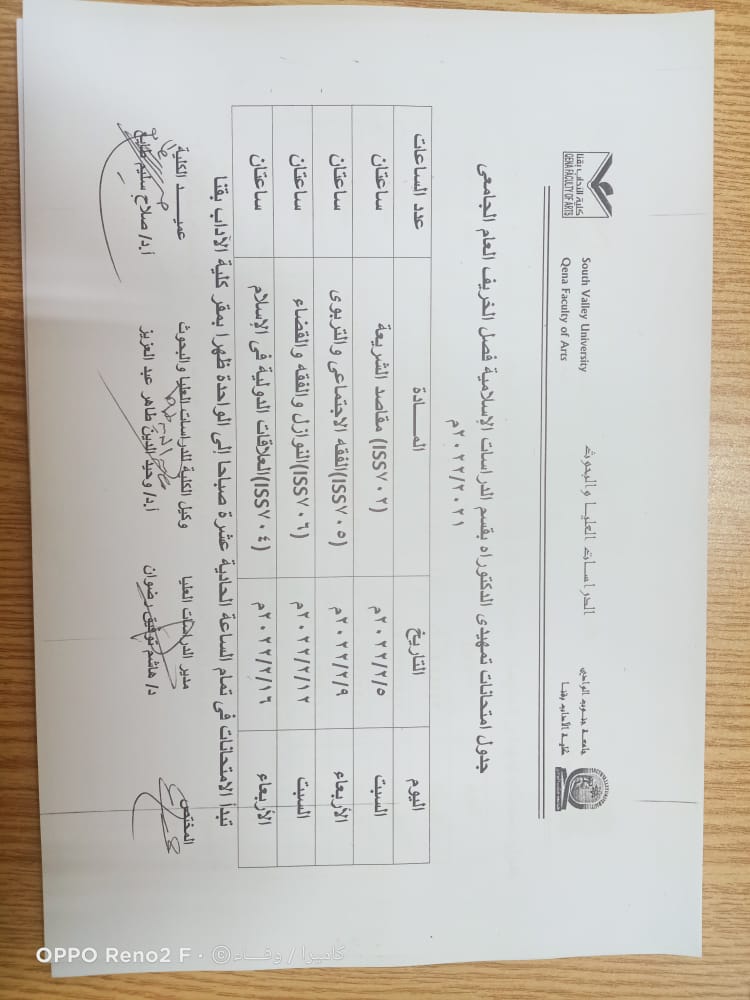 جامعة جنوب الوادي
كلية الآداب بقنا
الدراسات العليا والبحوث
South Valley University
Qena Faculty of Arts
كلية الآداب بقنا
QENA FACULTY OF ARTS
جدول امتحانات تمهيدى الدكتوراه بقسم الدراسات الإسلامية فصل الخريف العام الجامعى
٢٠٢٢/٢٠٢١م
اليوم التاريخ المـــادة عدد الساعات
السبت ٢٠٢٢/٢/٥م (ISS٧٠٢) مقاصد الشريعة ساعتان
الأربعاء ٢٠٢٢/٢/٩م (ISS٧٠٥)الفقه الاجتماعى والتربوى ساعتان
السبت ٢٠٢٢/٢/١٢م (ISS٧٠٦)النوازل والفقه والقضاء ساعتان
الأربعاء ٢٠٢٢/٢/١٦م (ISS٧٠٤)العلاقات الدولية فى الإسلام ساعتان
تبدأ الامتحانات فى تمام الساعة الحادية عشرة صباحا إلى الواحدة ظهرا بمقر كلية الآداب بقنا
المختص مدير الدراسات العليا وكيل الكلية للدراسات العليا والبحوث عميـــد الكلية
د/ هاشم توفيق رضوان أ.د/ وحيد الدين طاهر عبد العزيز أ.د/ صلاح سليم طايع
OPPO Reno2 F · ©كاميرا / وفـــاء